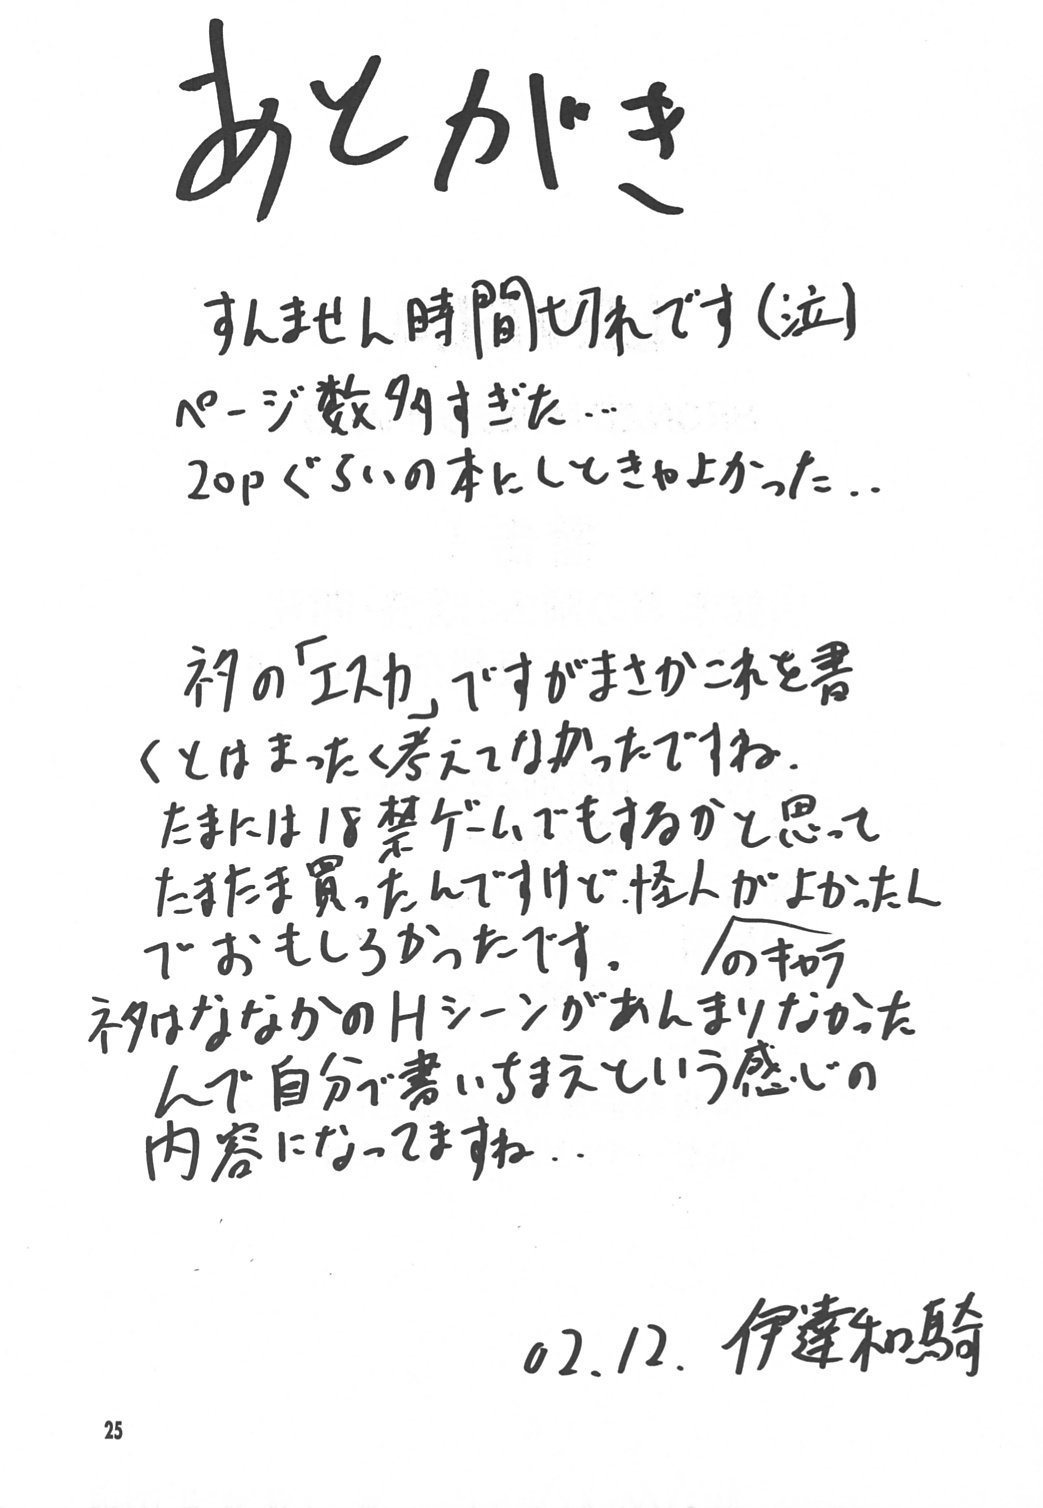 あとがき
すんません時間切れです(泣)
ページ数多すぎた…
20pぐらいの本にしときゃよかった‥
ネタの「エスカ」ですがまさかこれを書
くとはまったく考えてなかったですね.
たまには18禁ゲームでもするかと思って
たまたま買ったんですけど.怪人がよかったん
でおもしろかったです.
のキャラ
ネタはななかのHシーンがあんまりなかった
んで自分で書いちまえという感じの
内容になってますね‥
02.12. 伊達和騎
25